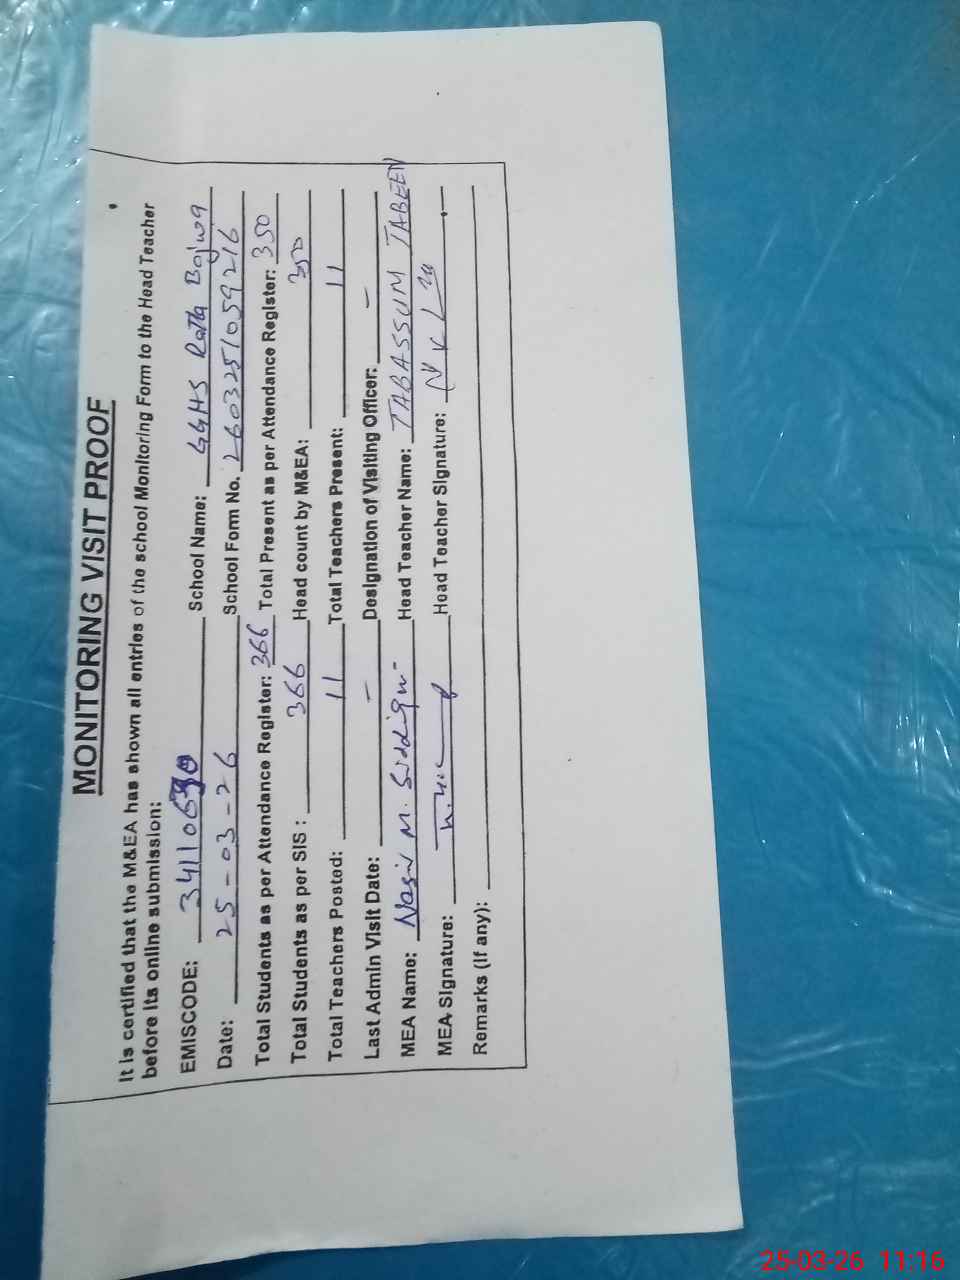 MONITORING VISIT PROOF
It is certified that the M&EA has shown all entries of the school Monitoring Form to the Head Teacher
before its online submission:
EMISCODE: School Name: GGHS Ratta Bajwa
Date: 25-03-26 School Form No. 2603251059216
Total Students as per Attendance Register: 366 Total Present as per Attendance Register: 350
Total Students as per SIS : 366 Head count by M&EA: 350
Total Teachers Posted: 11 Total Teachers Present: 11
Last Admin Visit Date: – Designation of Visiting Officer: –
MEA Name: Nasir M. Siddiqui Head Teacher Name: TABASSUM TABEEN
MEA Signature: Head Teacher Signature:
Remarks (If any):
25-03-26 11:16